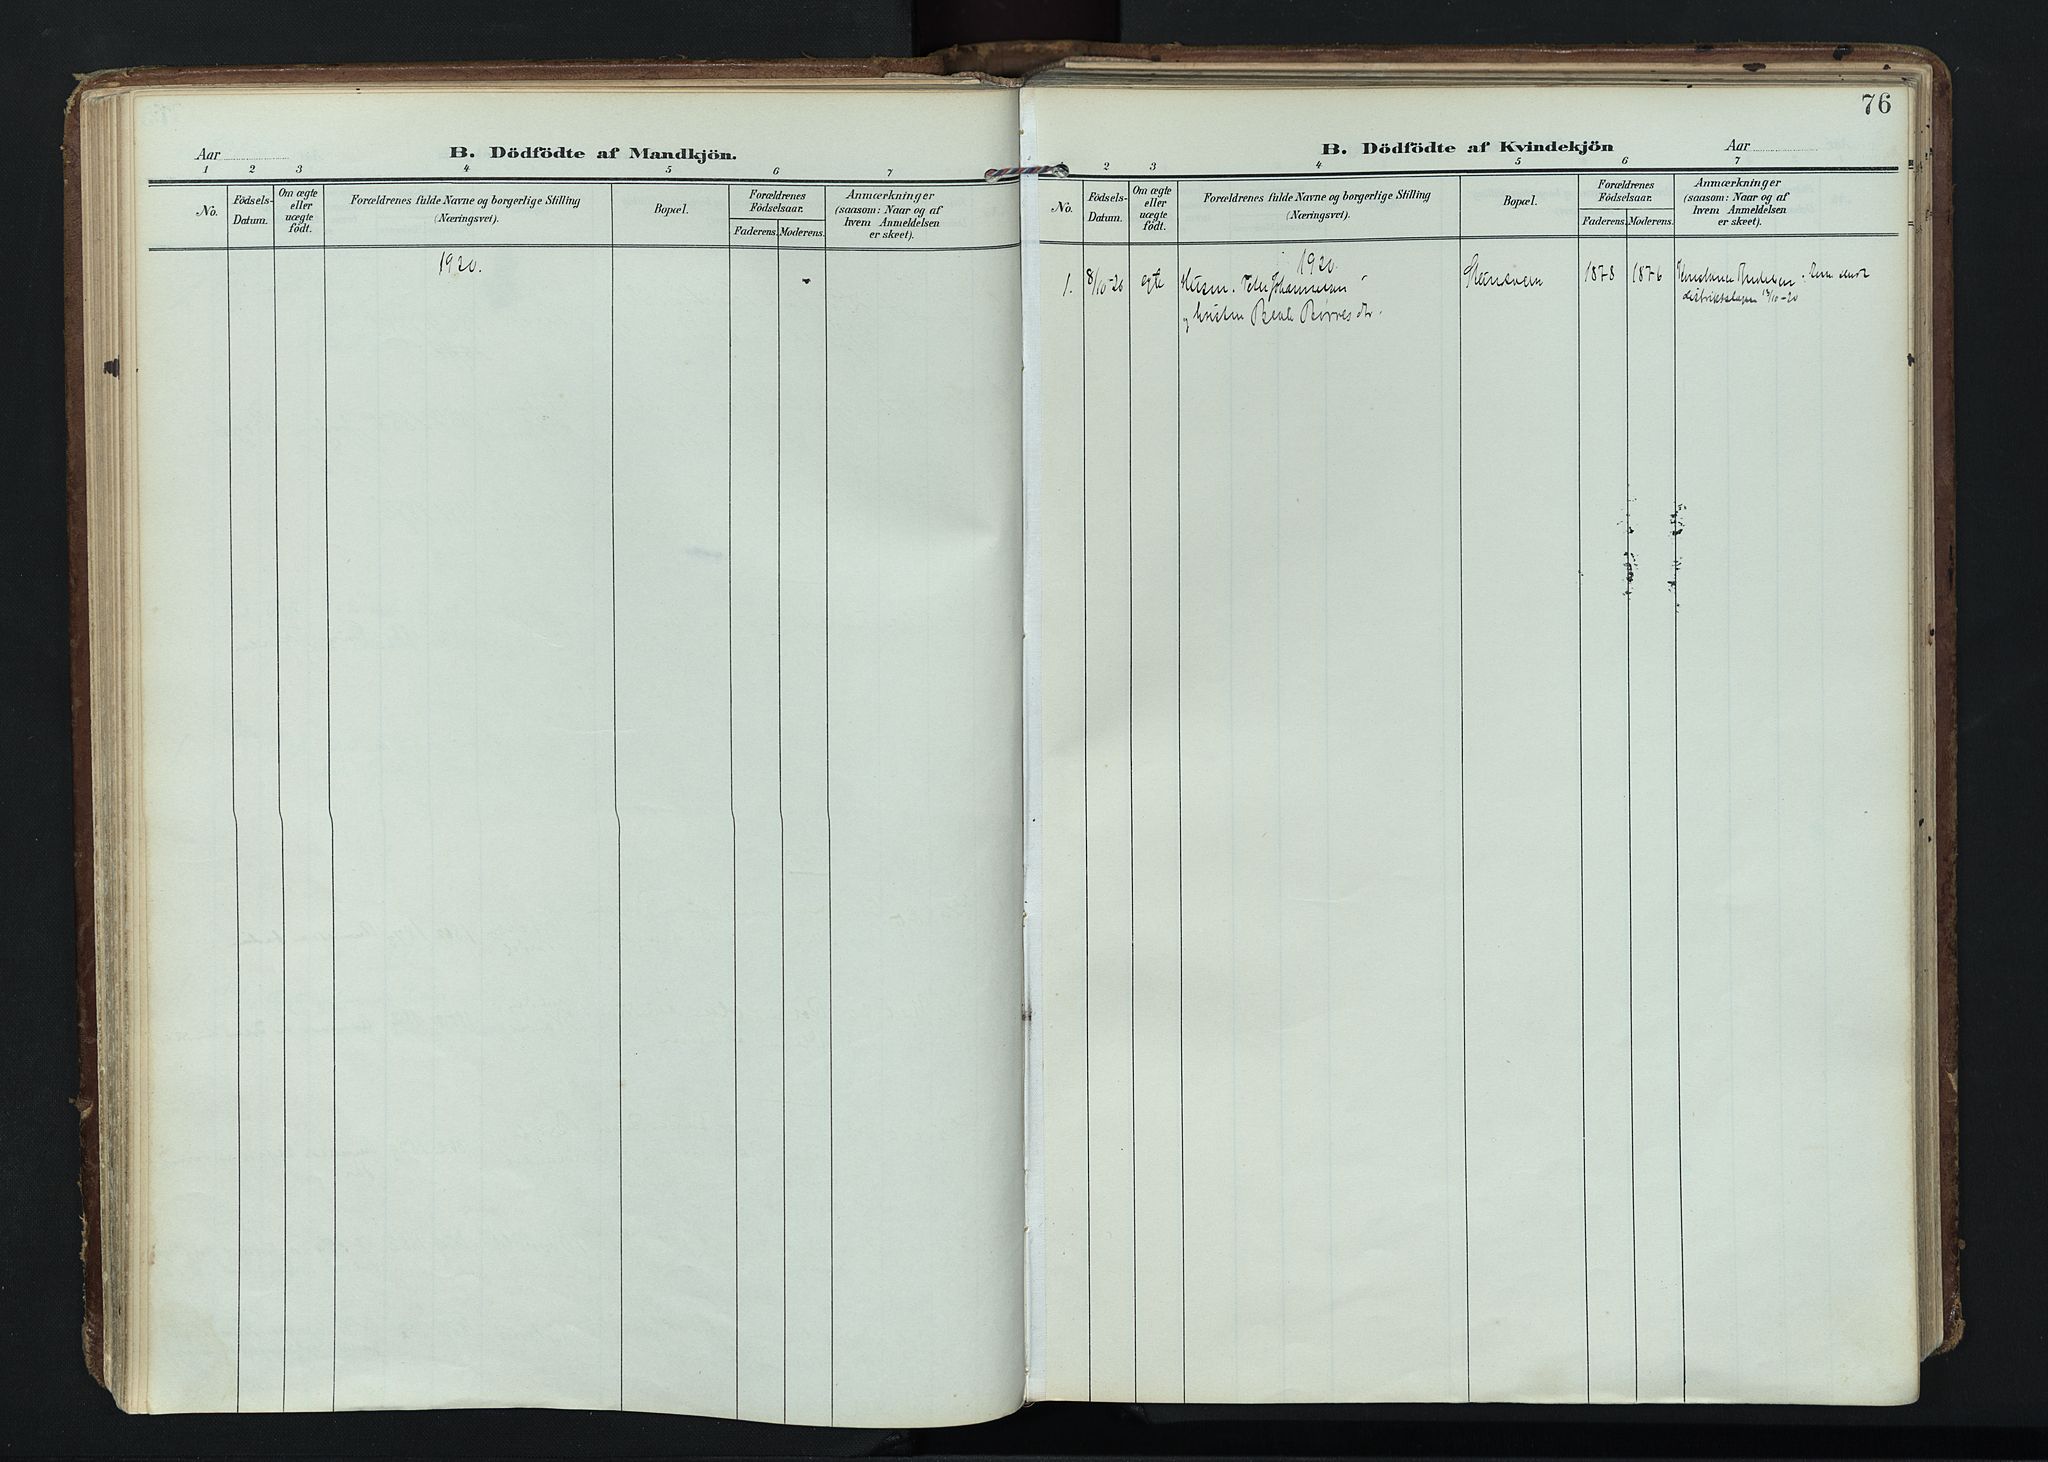 Aar
B. Dödfödte af Mandkjön.
1 2 3 4 5 6 7
No.
Födsels-
Datum.
Om ægte
eller
uægte
födt.
Forældrenes fulde Navne og borgerlige Stilling
(Næringsvei).
Bopæl.
Forældrenes
Födselsaar.
Faderens. Moderens.
Anmærkninger
(saasom: Naar og af
hvem Anmeldelsen
er skeet).
1920.
76
B. Dödfödte af Kvindekjön
Aar
1 2 3 4 5 6 7
No.
Födsels-
Datum.
Om ægte
eller
uægte
födt.
Forældrenes fulde Navne og borgerlige Stilling
(Næringsvei).
Bopæl.
Forældrenes
Födselsaar.
Faderens. Moderens.
Anmærkninger
(saasom: Naar og af
hvem Anmeldelsen
er skeet).
1920.
1. 8/10-20 egte Peder Johannesen 1878 1876
og hustru